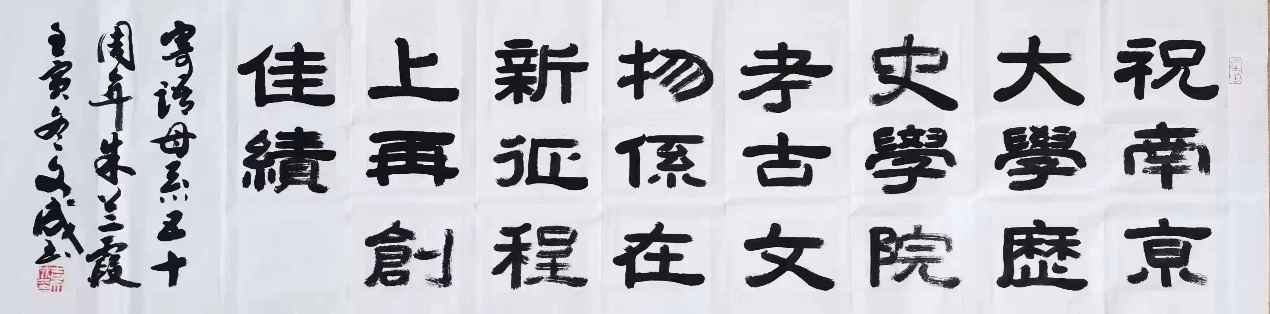 祝南京
大學歷
史學院
考古文
物係在
新征程
上再創
佳績
寄語母系五十
周年朱蘭霞
壬寅冬文成书